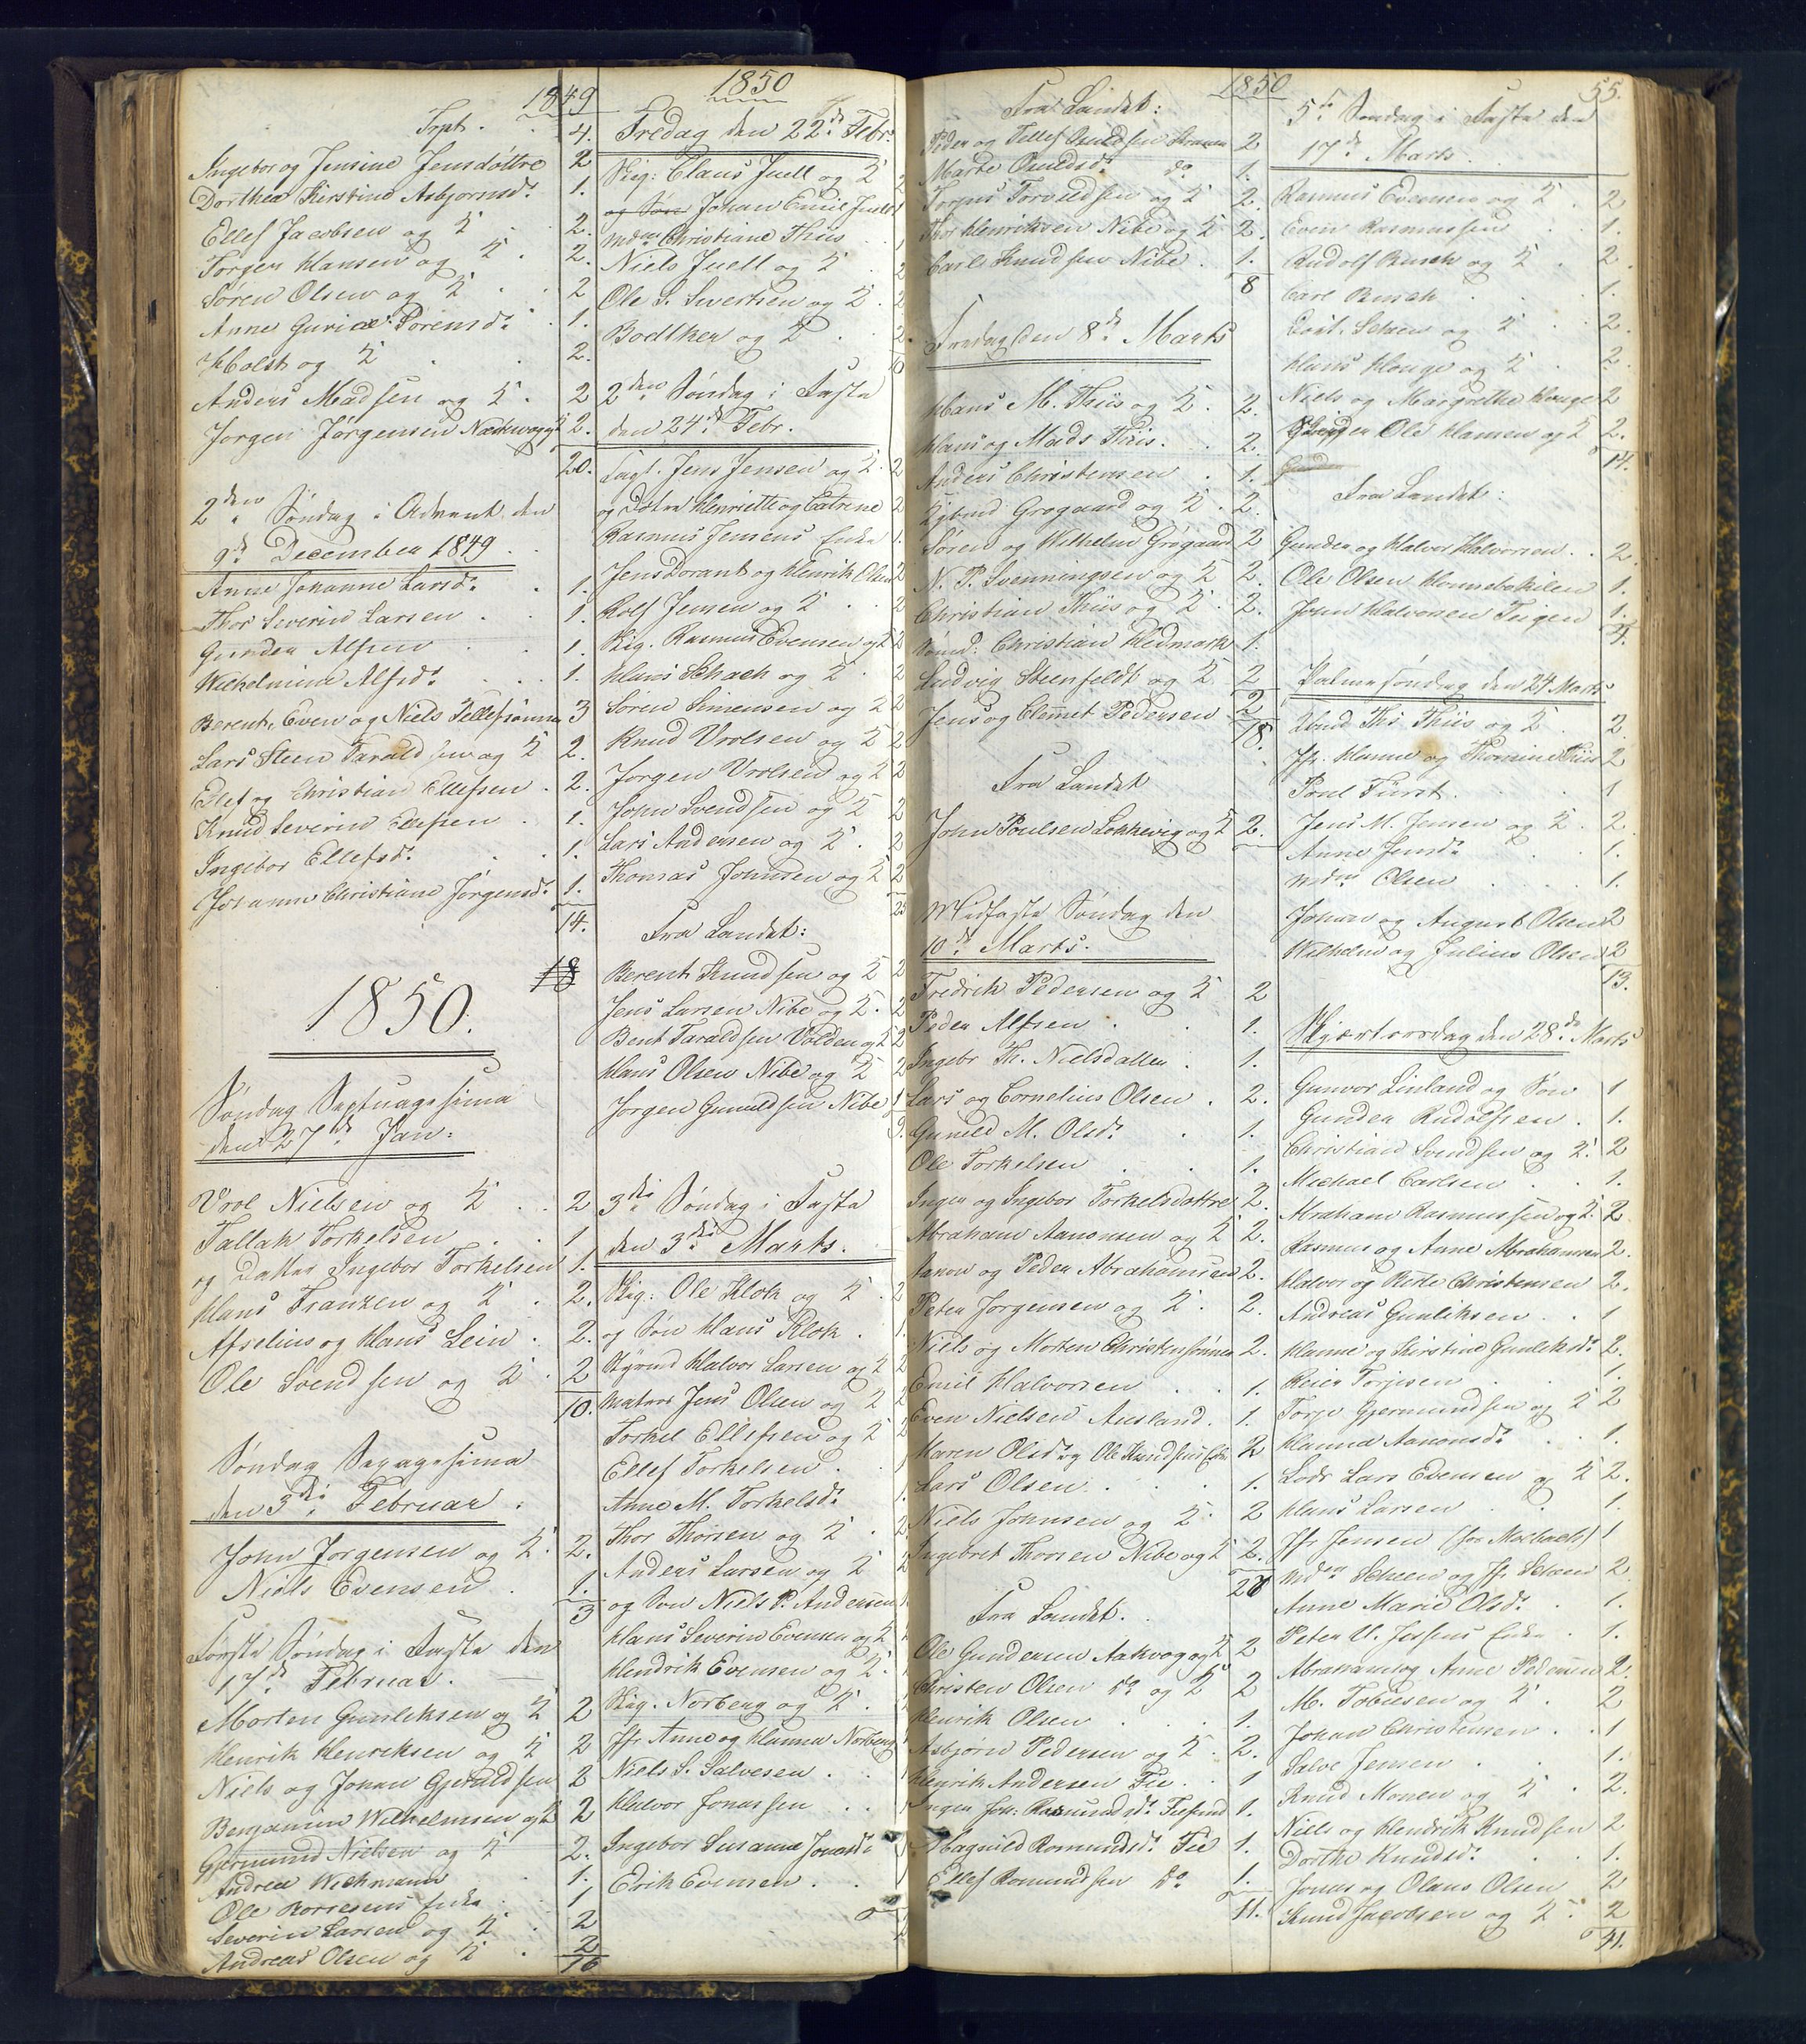 1849
Trpt. 4.
Ingebor og Jensine Jensdøttre 2
Dorthea Kirstine Asbjornsd. 1.
Ellef Jacobsen og K 2.
Torger Hansen og K 2.
Søren Olsen og K 2
Anne Gurine Sorensd. 1.
Holst og K 2.
Anders Madsen og K 2
Jorgen Jörgensen og K 2.
20.
2den Søndag i Advent den
9de December 1849.
Anne Johanne Larsd. 1.
Thor Severin Larsen 1.
Gunder Alfsen 1.
Wilhelmine Alfsd. 1.
Berent, Even og Niels Tellefsønner 3
Lars Steen Taraldsen og K 2.
Ellef og Christian Ellefsen 2.
Knud Severin Ellefsen 1.
Ingebor Ellefsd. 1.
Johanne Christiane Jörgensd. 1.
14.
18
1850.
Søndag Septuagesima
den 27de Jan:
Vrol Nielsen og K 2
Tallak Torkelsen 1
og Datter Ingebor Torkelsen 1.
Hans Franzen og K 2.
Afselius og Hans Lein 2.
Ole Svendsen og K 2
10.
Søndag Sexagesima
den 3die Februar.
John Jorgensen og K 2.
Niels Evensen 1.
3
Første Søndag i Faste den
17de Februar.
Morten Gunleksen og K 2
Henrik Henriksen og K 2
Niels og Johan Gjeruldsen 2
Benjamin Wilhelmsen og K 2
Gjermund Nielsen og K 2.
Andrea Wichmann 1.
Ole Enke 1
Severin Larsen og K 2
Andreas Olsen og K 2
16
1850
Fredag den 22de Febr.
Skig: Claus Juell og K 2
og Søn Johan Emil Juell 1
Mdm Christiane Thiis 1
Niels Juell og K 2
Ole S. Sivertsen og K 2
Bodtker og K 2
10
2den Søndag i Faste
den 24de Febr.
Jens Jensen og K 2
og Døtre Henriette og Catrine 2
Rasmus Jensens Enke 1.
Jens Dorant og Henrik Olsen 2
Rolf Jensen og K 2
Skig. Rasmus Evensen og K 2
Hans Schach og K 2
Søren Simensen og K 2
Knud Vrolsen og K 2
Jorgen Vrolsen og K 2
John Svendsen og K 2
Lars Andersen og K 2
Thomas Johnsen og K 2
25
Fra Landet:
Berent Knudsen og K 2
Jens Larsen Nibe og K 2
Bent Taraldsen Volden og K 2
Hans Olsen Nibe og K 2
Jorgen Gunuldsen Nibe 1
9.
3die Søndag i Faste
den 3die Marts.
Skig: Ole Klok og K 2
og Søn Hans Klok 1.
Halvor Larsen og K 2
Matros Jens Olsen og K 2
Torkel Ellefsen og K 2
Ellef Torkelsen 1
Anne M. Torkelsd. 1.
Thor Thorsen og K 2
Anders Larsen og K 2
og Søn Niels P. Andersen 1
Hans Severin Evensen og K
Hendrik Evensen og K
Skig. Norberg og K
Jfr Anne og Hanna Norberg
Niels S. Salvesen
Halvor Jonassen
Ingebor Susanne Jonasd.
Erik Evensen
1850
Fra Landet:
Peder og Tellef Omldsen 2
Marte do 1.
Torjus Torvildsen og K 2.
Thor Henriksen Nibe og K 2.
Carl Knudsen Nibe 1.
8
Fredag den 8de Marts
Hans M. Thiis og K 2.
Hans og Mads Thiis. 2.
Anders Christensen 1.
Grogaard og K 2.
Søren og Wilhelm Grøgaard 2
N. P. Svenningsen og K 2.
Christian Thiis og K 2.
Christian Hedmark 1.
Ludvig Steenfeldt og K 2
Jens og Clemmet Pedersen 2
18.
Fra Landet
John Poulsen Lokkevig og K 2.
Midfaste Søndag den
10de Marts.
Fredrik Pedersen og K 2
Peder Alfsen 1.
Ingebr Th. Nielsdatter 1.
Lars og Cornelius Olsen 2.
Gunild M. Olsd. 1.
Ole Torkelsen 1.
Inger og Ingebor Torkelsdøttre 2.
Abraham Aanonsen og K 2.
Aanon og Peder Abrahamsen 2.
Peter Jorgensen og K 2.
Niels og Morten Christensønner 2.
Emil Halvorsen 1.
Even Nielsen Ausland. 1.
Karen Olsd. og Ole Knudsens Enke 2
Lars Olsen 1.
Niels Johnsen og K 2
Ingebret Thorsen Nibe og K 2.
28
Fra Landet.
Ole Gundersen Aakvog og K 2
Christen Olsen do og K 2
Henrik Olsen 1.
Asbjørn Pedersen og K 2.
Henrik Andersen Fie 1
Inger Joh: Romundsd. 1.
Magnild Romundsd. Fie 1.
Ellef Romundsen do 1.
11.
55.
5te Søndag i Faste den
17de Marts
Rasmus Evensen og K 2
Even Rasmussen 1.
Rudolf Busch og K 2.
Carl Busch 1.
Scheen og K 2.
Hans Houge og K 2.
Niels og Margrethe Houge 2
Ole Hansen og K 2.
14.
Fra Landet:
Gunder og Halvor Halvorsen 2
Ole Olsen Honnebokilen 1.
John Halvorsen Teigen 1.
4.
Palmesöndag den 24 Marts
Ths Thiis og K 2.
Jfr. Hanne og Thomine Thiis 2
Poul Furst 1
Jens M. Jensen og K 2.
Anne Jensd. 1.
Mdm Olsen 1.
Johan og August Olsen 2
Wilhelm og Julius Olsen 2
13.
Skjærtorsdag den 28de Marts
Gunvor Linland og Søn 1
Gunder Rudolfsen 1.
Christian Svendsen og K 2
Michael Carlsen 1.
Abraham Rasmussen og K. 2
Rasmus og Anne Abrahamsen 2.
Halvor og Christensen 2.
Andreas Gunliksen 1
Hanne og Kirstine Gunleksd. 2.
Reier Torjesen 1.
Torje Gjermundsen og K 2
Hanna Aanonsd. 1.
Lods Lars Evensen og K 2.
Hans Larsen 1.
Jfr Jensen (for Morbach) 1
Mdm Scheen og Jfr Scheen 2
Anne Marie Olsd. 1.
Peter U. Jessens Enke 1.
Abraham og Anne Pedersen 2.
M. Tobiesen og K. 2
Johan Christensen 1
Salve Jensen 1.
Knud Monen og K 2.
Niels og Hendrik Knudsen 2
Dorthe Knudsd. 1.
Jonas og Olaus Olsen 2
Knud Jacobsen og K 2
41.